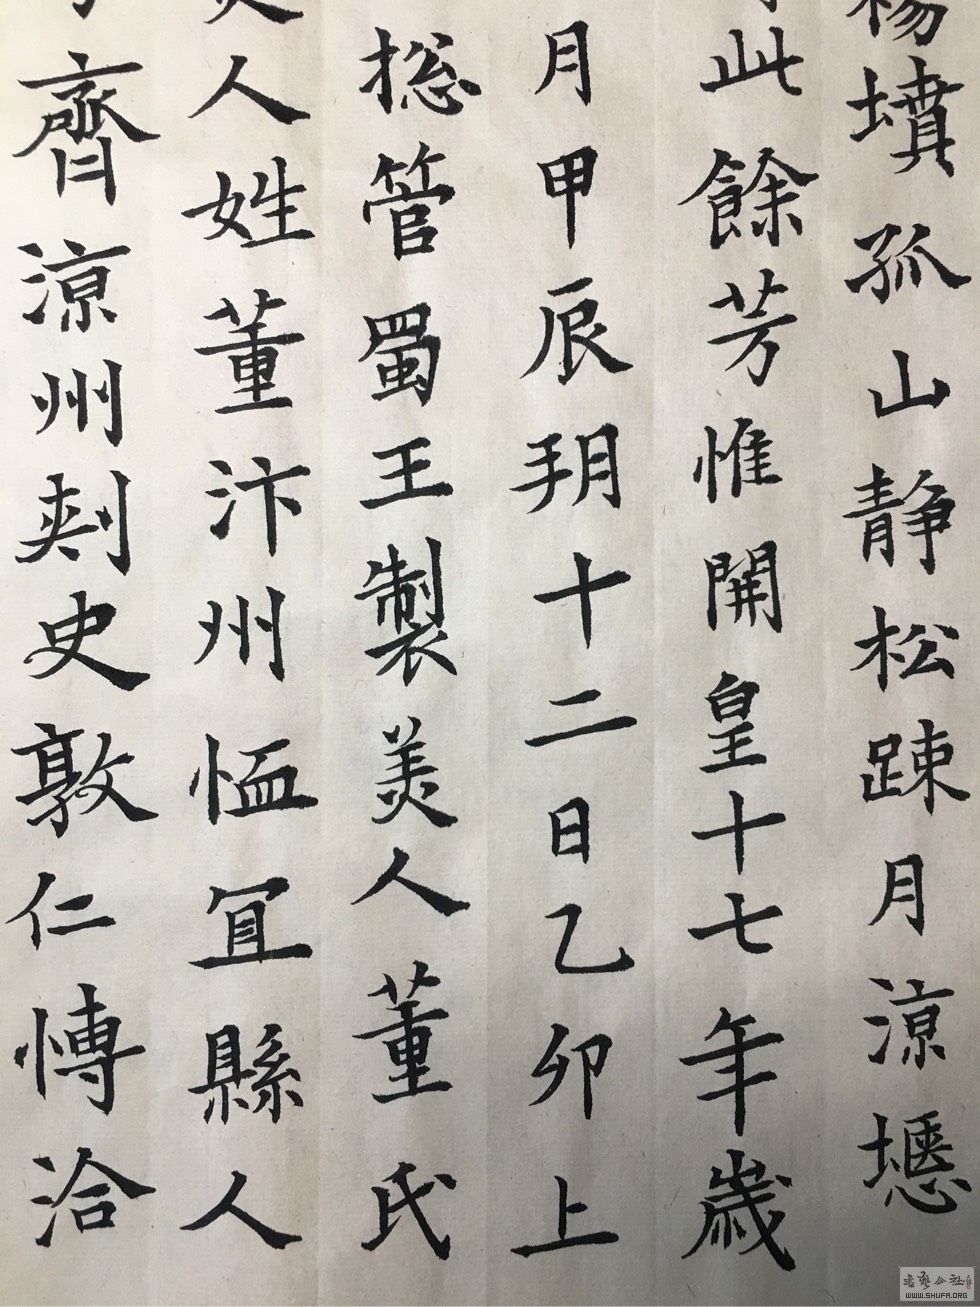 楊墳孤山静松踈月涼
此餘芳惟開皇十七年歲
月甲辰朔十二日乙卯上
捴管蜀王製美人董氏
人姓董汴州恤冝縣人
齊涼州刾史敦仁愽洽
書藝公社
WWW.SHUFA.ORG